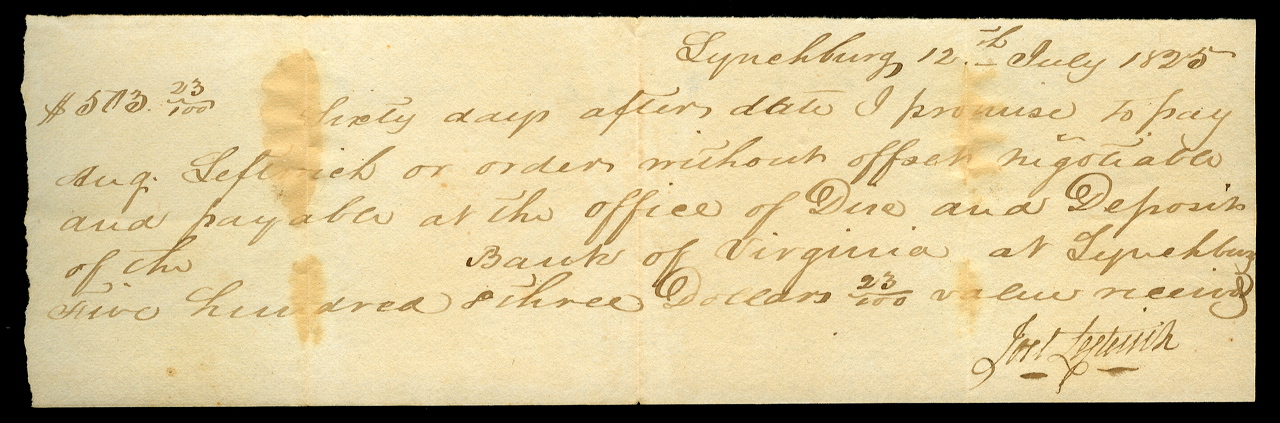 Lynchburg 12.th July 1825
$503. 23/100 Sixty days after date I promise to pay
Aug. Leftwich or order, without offset negotiable
and payable at the office of Disc and Deposit
of the Bank of Virginia at Lynchburg
Five hundred & three Dollars 23/100 value receivd
Joel Leftwich